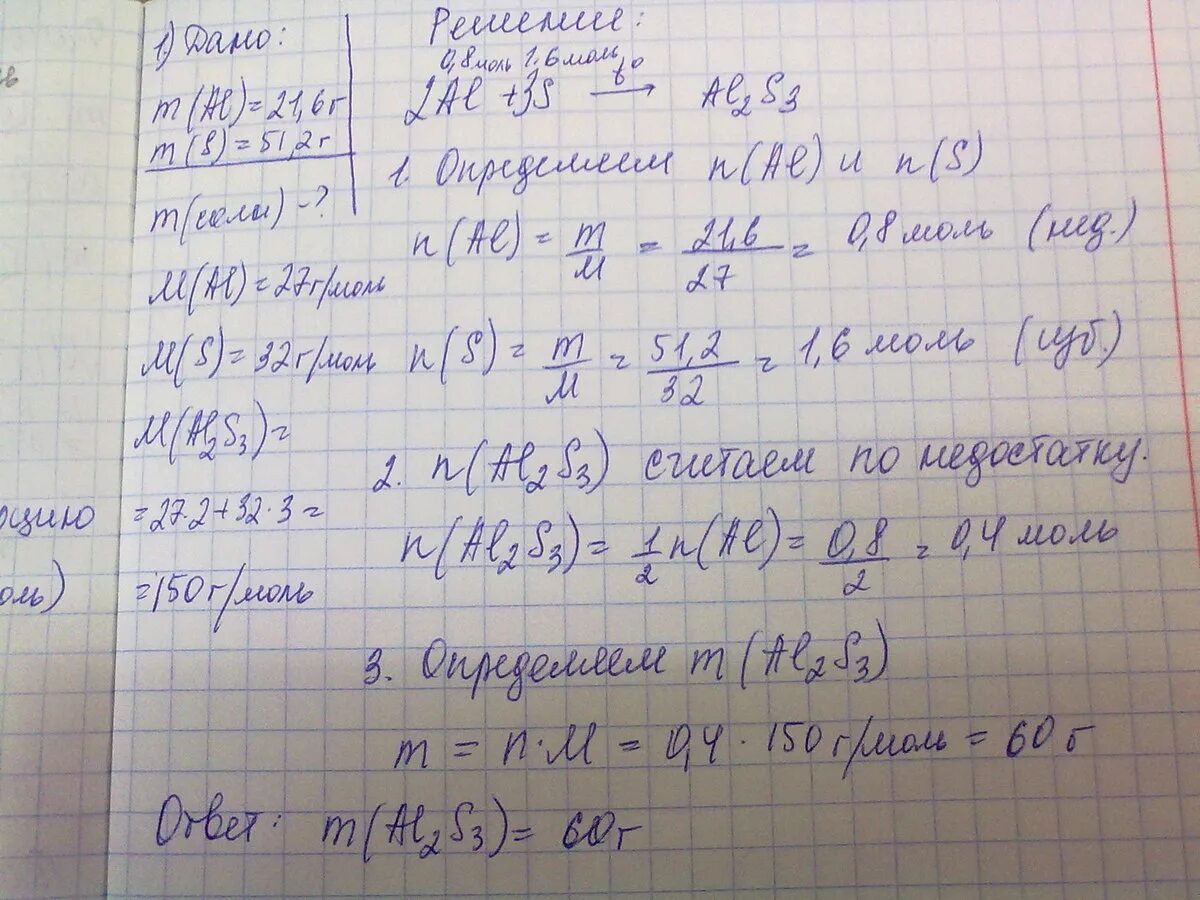 1) Дано:
m(Al)=21,6г
m(S)=51,2г
m(соли)-?
M(Al)=27г/моль
M(S)=32г/моль
M(Al₂S₃)=
=27·2+32·3=
=150г/моль
Решение:
0,8моль 1,6моль
2Al+3S t° → Al₂S₃
1. Определяем n(Al) и n(S)
n(Al) = m/M = 21,6/27 = 0,8моль (нед.)
n(S) = m/M = 51,2/32 = 1,6моль (изб.)
2. n(Al₂S₃) считаем по недостатку.
n(Al₂S₃) = 1/2 n(Al) = 0,8/2 = 0,4моль
3. Определяем m(Al₂S₃)
m = n·M = 0,4·150г/моль = 60г
Ответ: m(Al₂S₃) = 60г
оль)